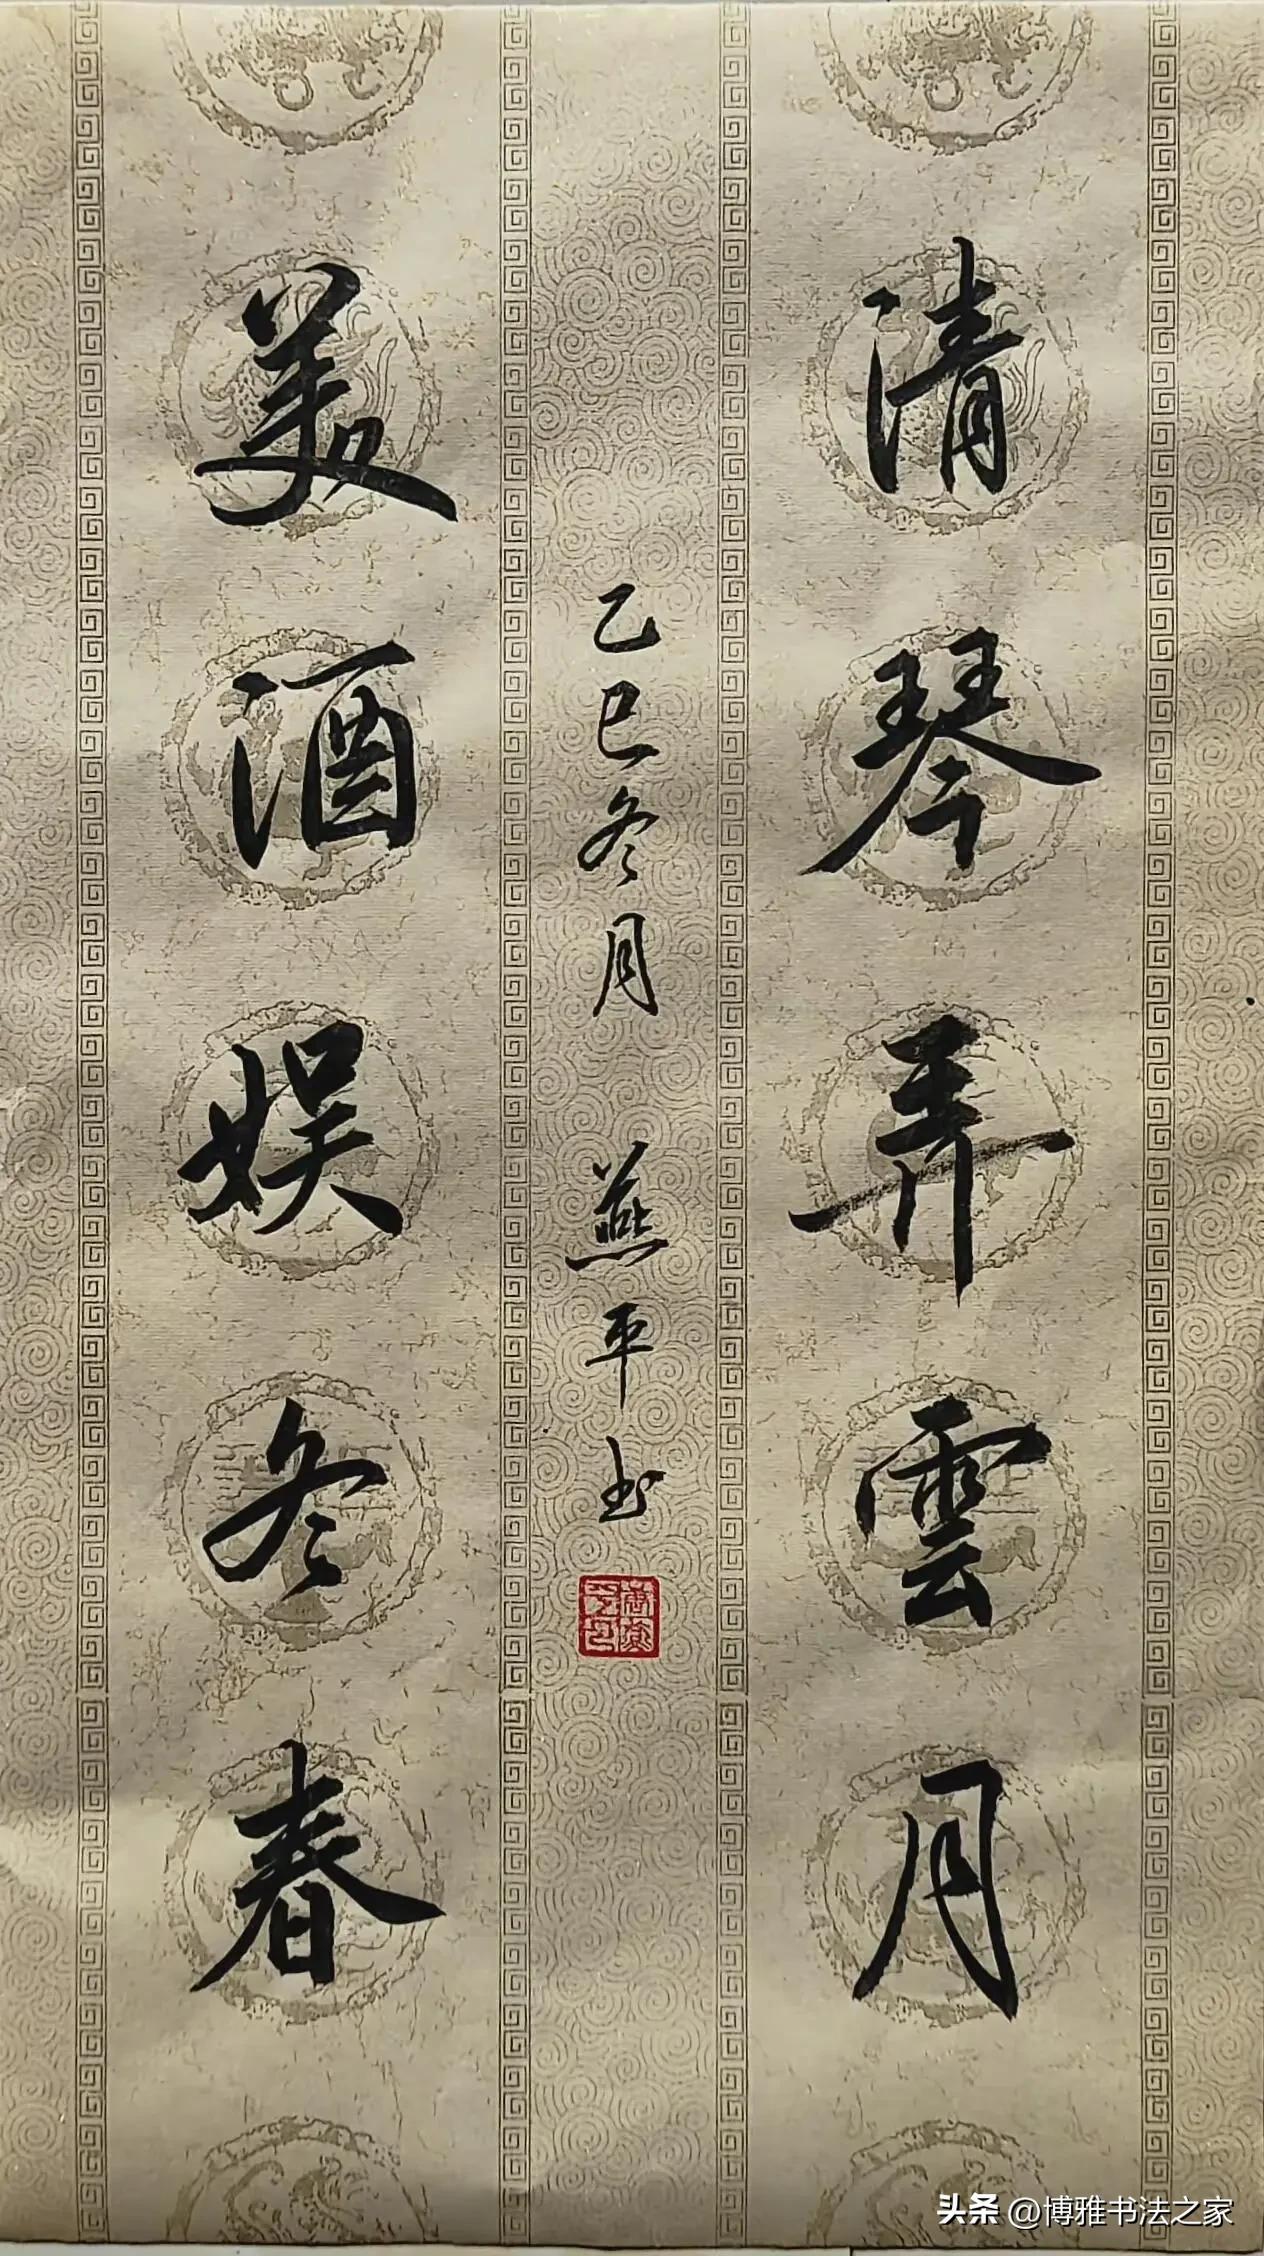 清琴弄雲月
乙巳冬月 燕平书
美酒娱冬春
头条 @博雅书法之家